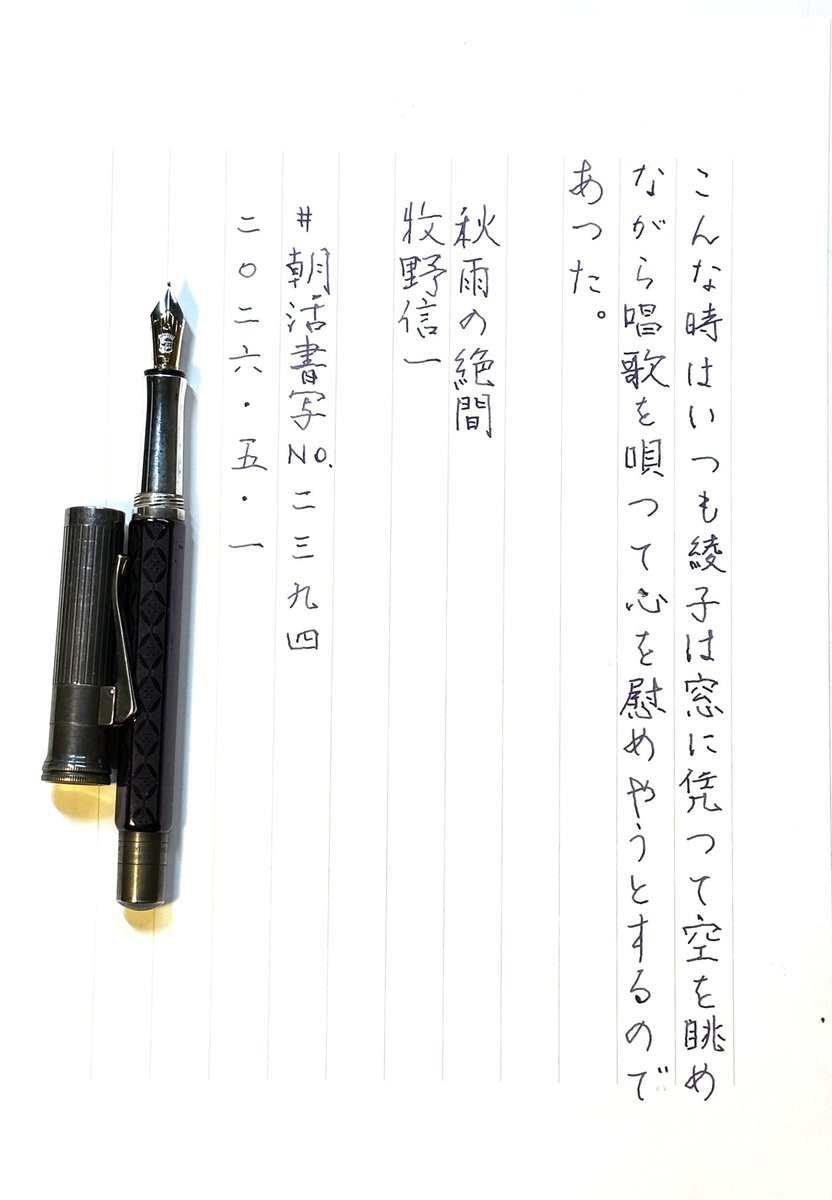 こんな時はいつも綾子は窓に凭つて空を眺め
ながら唱歌を唄つて心を慰めやうとするので
あつた。
秋雨の絶間
牧野信一
#朝活書写No.二三九四
二〇二六・五・一